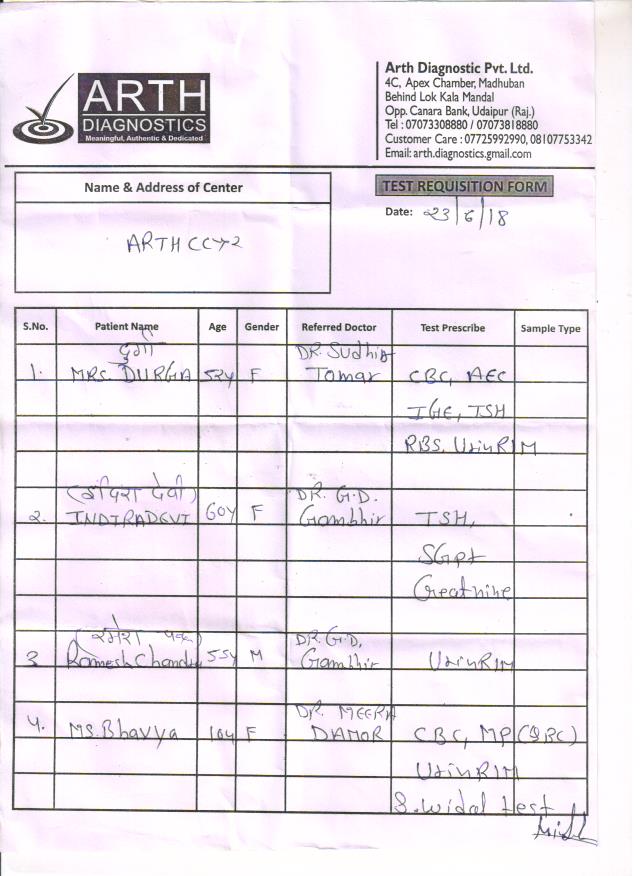 ARTH
DIAGNOSTICS
Meaningful, Authentic & Dedicated
Arth Diagnostic Pvt. Ltd.
4C, Apex Chamber, Madhuban
Behind Lok Kala Mandal
Opp. Canara Bank, Udaipur (Raj.)
Tel : 07073308880 / 07073818880
Customer Care : 07725992990, 08107753342
Email: arth.diagnostics.gmail.com
Name & Address of Center
ARTH CC→2
TEST REQUISITION FORM
Date: 23/6/18
S.No. Patient Name Age Gender Referred Doctor Test Prescribe Sample Type
दुर्गा DR. Sudhir
1. MRS. DURGA 52y F Tomar CBC, AEC
IGE, TSH
RBS. Urin R/M
(इंदिरा देवी) DR. G.D.
2. INDIRADEVI 60y F Gambhir TSH,
SGpt
Creatnine
DR. G.D.
3 Ramesh Chandra 55y M Gambhir Urin R/M
DR. MEERA
4. MS. Bhavya 10y F DAMOR CBC, MP (QBC)
Urin R/M
S. widal test